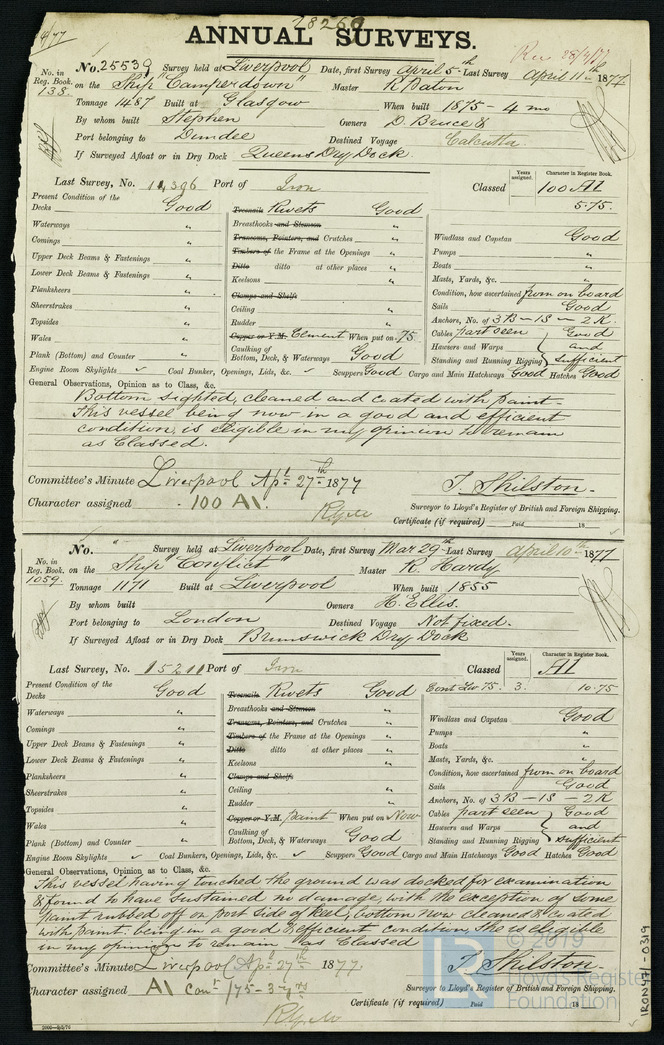 28260
ANNUAL SURVEYS.
Rec 28/4/77
No. in Reg. Book. 138.
No. 25539 Survey held at Liverpool Date, first Survey April 5th Last Survey April 11th 1877
on the Ship "Camperdown" Master R Paton
Tonnage 1487 Built at Glasgow When built 1875 - 4 mo
By whom built Stephen Owners D. Bruce &
Port belonging to Dundee Destined Voyage Calcutta.
If Surveyed Afloat or in Dry Dock Queens Dry Dock.
Last Survey, No. 14396 Port of Iron Classed Years assigned. Character in Register Book. 100 A1
5.75.
Present Condition of the
Decks Good
Waterways "
Comings "
Upper Deck Beams & Fastenings "
Lower Deck Beams & Fastenings "
Planksheers "
Sheerstrakes "
Topsides "
Wales "
Plank (Bottom) and Counter "
Treenails Rivets Good
Breasthooks and Stemson "
Transoms, Pointers, and Crutches "
Timbers of the Frame at the Openings "
Ditto ditto at other places "
Keelsons "
Clamps and Shelfs
Ceiling "
Rudder "
Copper or Y.M. Cement When put on 75.
Caulking of Bottom, Deck, & Waterways Good
Windlass and Capstan Good
Pumps "
Boats "
Masts, Yards, &c. "
Condition, how ascertained from on board
Sails Good
Anchors, No. of 3B - 1S - 2K
Cables part seen Good
Hawsers and Warps and
Standing and Running Rigging sufficient
Engine Room Skylights ✓ Coal Bunker, Openings, Lids, &c. ✓ Scuppers Good Cargo and Main Hatchways Good Hatches Good
General Observations, Opinion as to Class, &c.
Bottom sighted, cleaned and coated with paint.
This vessel being now in a good and efficient
condition, is eligible in my opinion to remain
as Classed.
Committee's Minute Liverpool Apl 27th 1877
Character assigned 100 A1.
T. Shilston.
Surveyor to Lloyd's Register of British and Foreign Shipping.
Certificate (if required) Paid 18
No. in Reg. Book. 1059.
No. " Survey held at Liverpool Date, first Survey Mar 29th Last Survey April 10th 1877
on the Ship "Conflict" Master R. Hardy
Tonnage 1171 Built at Liverpool When built 1855
By whom built Owners H. Ellis.
Port belonging to London Destined Voyage Not fixed.
If Surveyed Afloat or in Dry Dock Brunswick Dry Dock
Last Survey, No. 15211 Port of Iron Classed Years assigned. Character in Register Book. A1
Cont Lw 75. 3. 10.75
Present Condition of the
Decks Good
Waterways "
Comings "
Upper Deck Beams & Fastenings "
Lower Deck Beams & Fastenings "
Planksheers "
Sheerstrakes "
Topsides "
Wales "
Plank (Bottom) and Counter "
Treenails Rivets Good
Breasthooks and Stemson "
Transoms, Pointers, and Crutches "
Timbers of the Frame at the Openings "
Ditto ditto at other places "
Keelsons "
Clamps and Shelfs
Ceiling "
Rudder "
Copper or Y.M. paint When put on Now
Caulking of Bottom, Deck, & Waterways Good
Windlass and Capstan Good
Pumps "
Boats "
Masts, Yards, &c. "
Condition, how ascertained from on board
Sails Good
Anchors, No. of 3B - 1S - 2K
Cables part seen Good
Hawsers and Warps and
Standing and Running Rigging sufficient
Engine Room Skylights ✓ Coal Bunkers, Openings, Lids, &c. ✓ Scuppers Good Cargo and Main Hatchways Good Hatches Good
General Observations, Opinion as to Class, &c.
This vessel having touched the ground was docked for examination
& found to have sustained no damage, with the exception of some
paint rubbed off on port side of keel, bottom now cleaned & coated
with paint. being in a good & efficient condition, she is eligible
in my opinion to remain as Classed
Committee's Minute Liverpool Apl 27th 1877.
Character assigned A1 Cont /75 - 3 yrs
T. Shilston
Surveyor to Lloyd's Register of British and Foreign Shipping.
Certificate (if required) Paid 18
© 2019
Lloyd's Register
Foundation
IRON471-0319